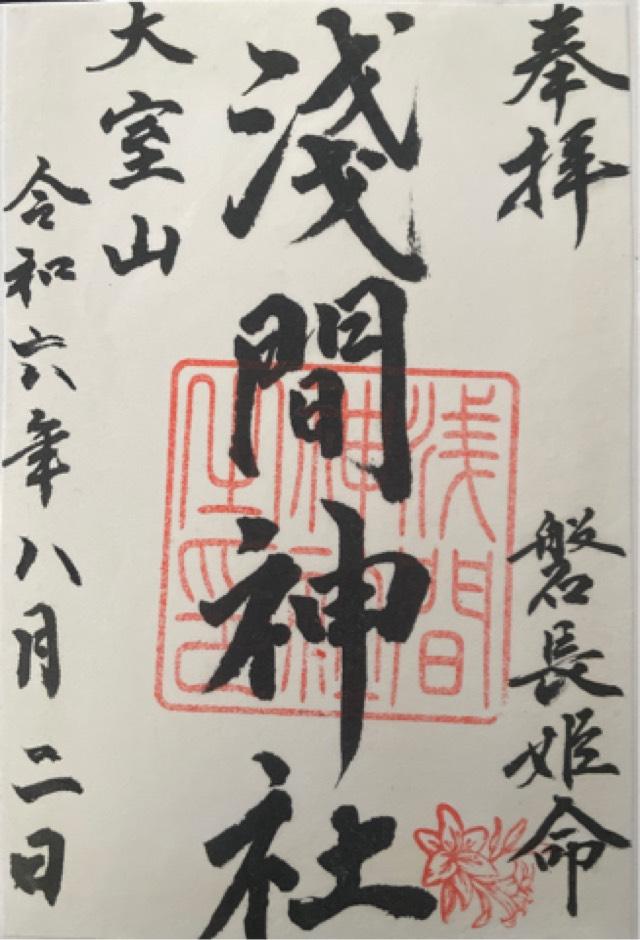 奉拝
磐長姫命
淺間神社
浅間神社之印
大室山
令和六年八月二日